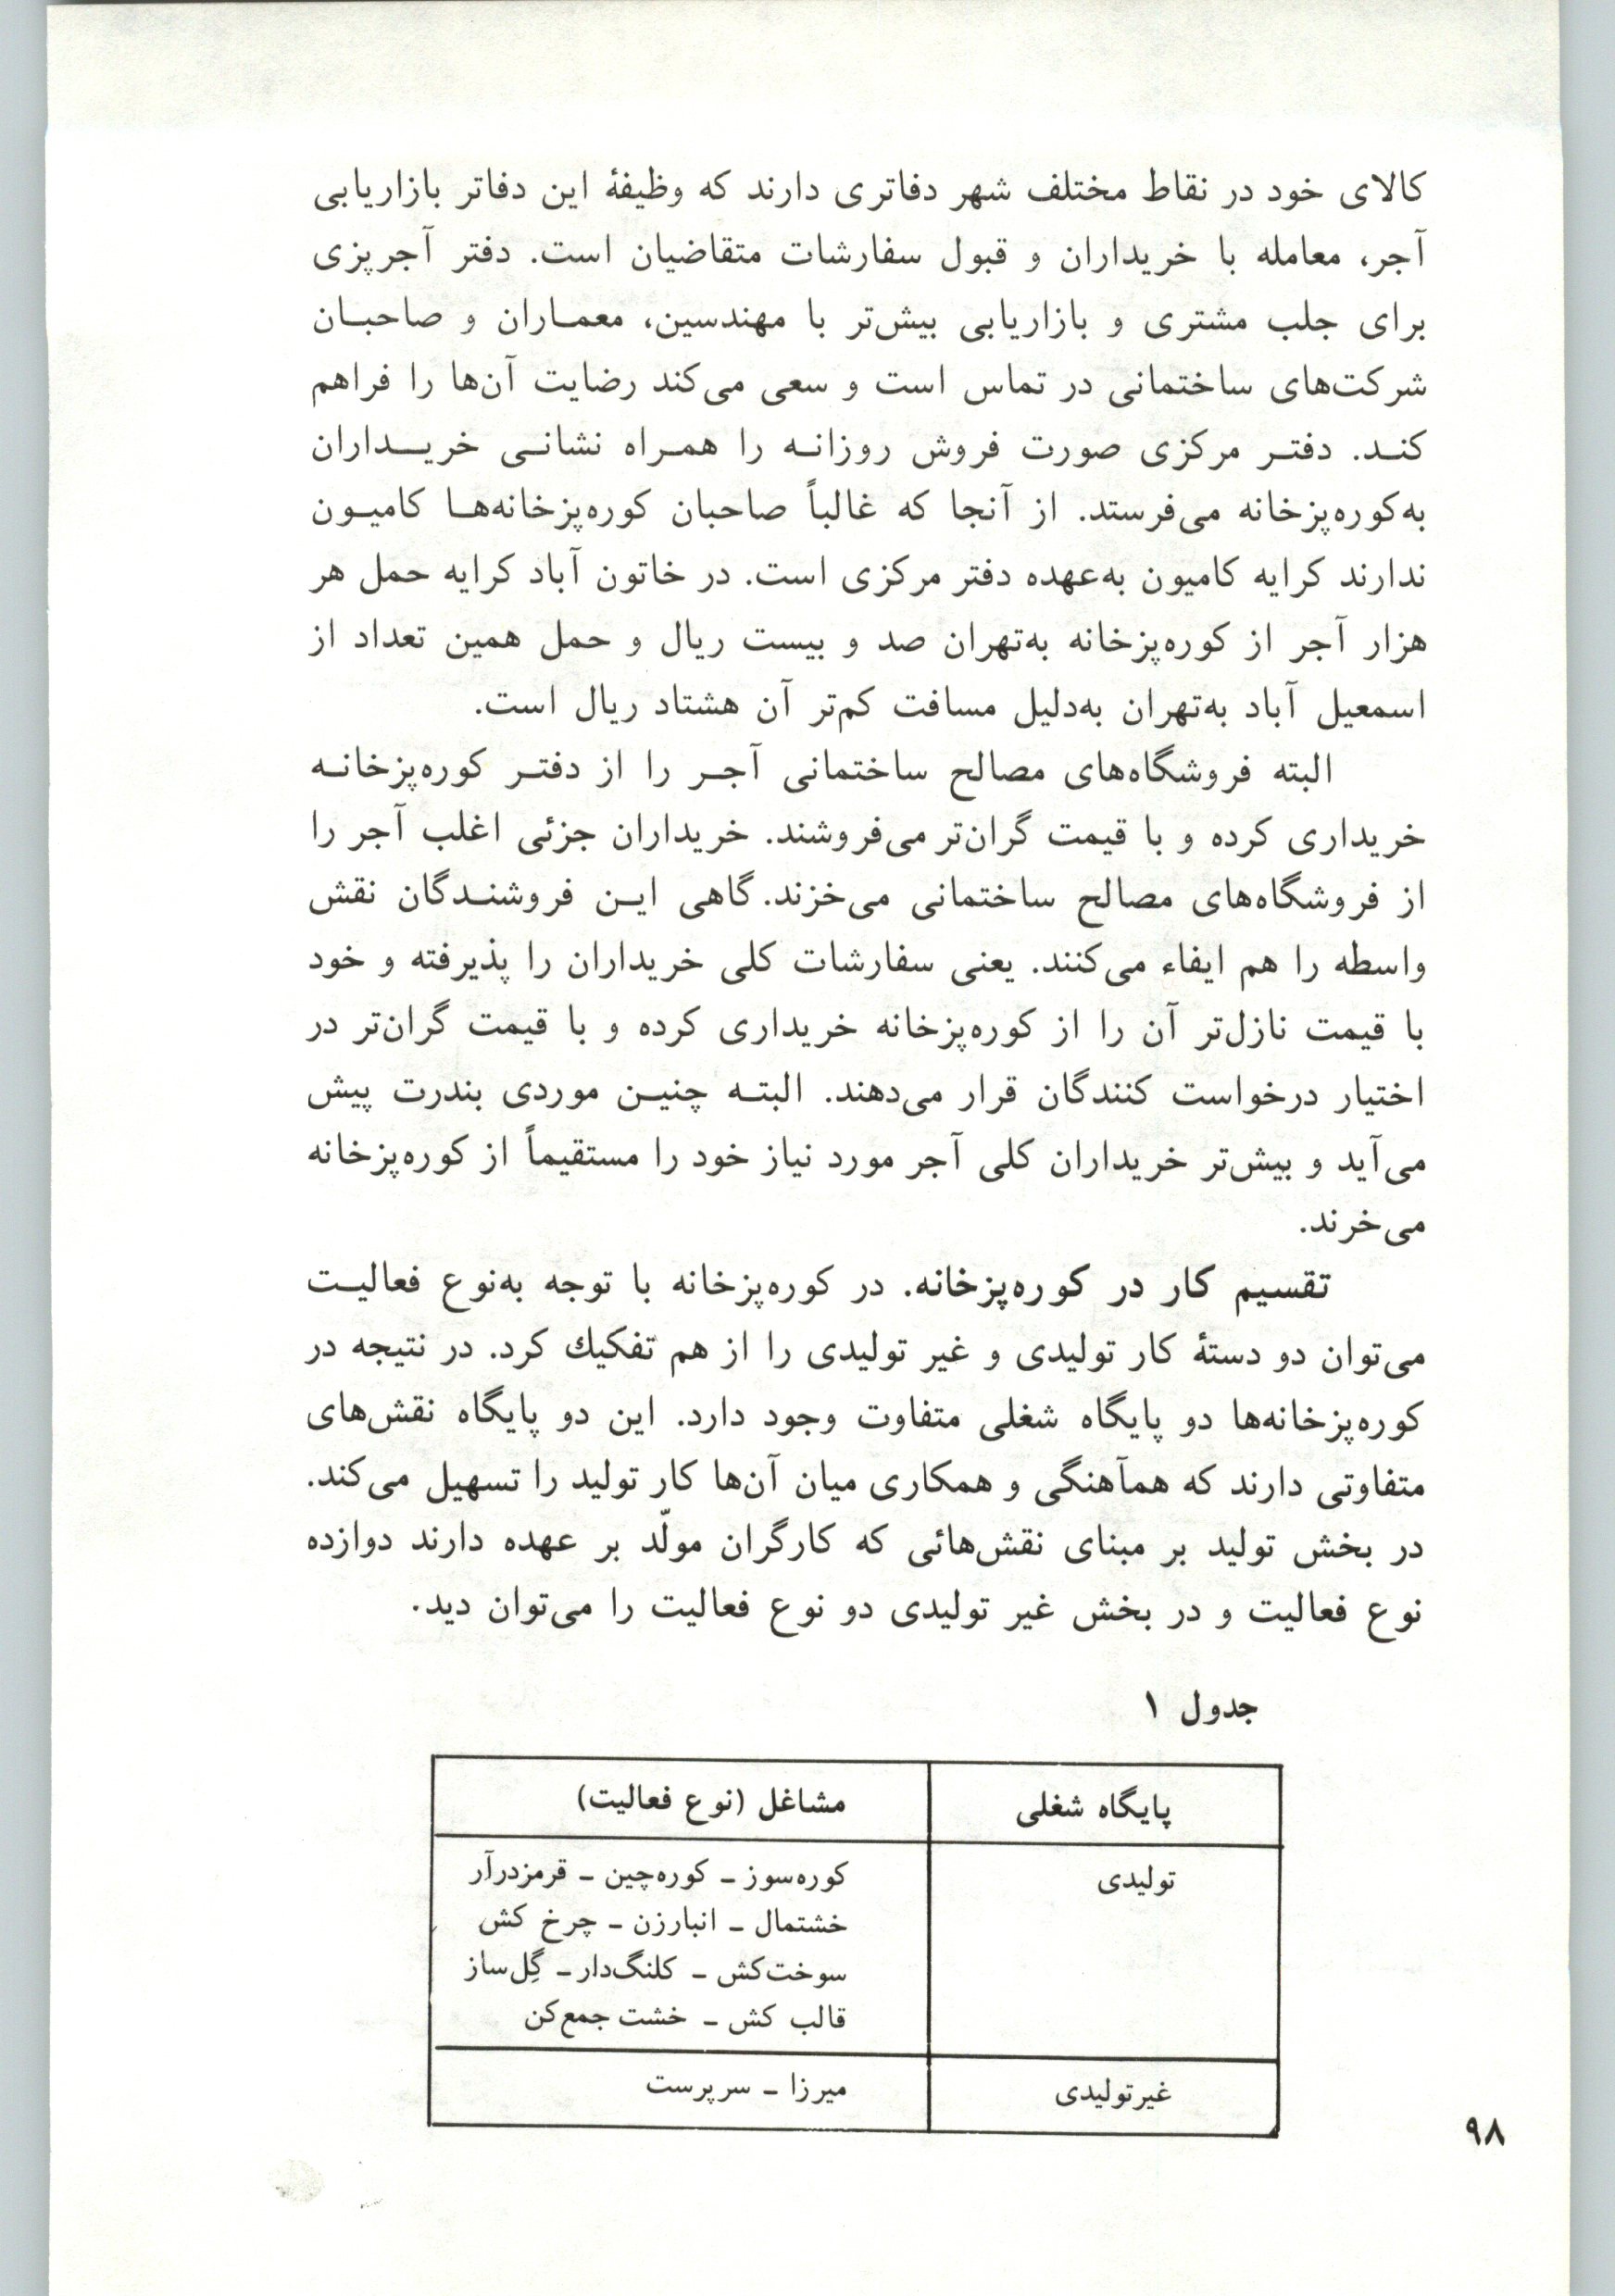 کالای خود در نقاط مختلف شهر دفاتری دارند که وظیفهٔ این دفاتر بازاریابی
آجر، معامله با خریداران و قبول سفارشات متقاضیان است. دفتر آجرپزی
برای جلب مشتری و بازاریابی بیش‌تر با مهندسین، معماران و صاحبان
شرکت‌های ساختمانی در تماس است و سعی می‌کند رضایت آن‌ها را فراهم
کند. دفتر مرکزی صورت فروش روزانه را همراه نشانی خریداران
به‌کوره‌پزخانه می‌فرستد. از آنجا که غالباً صاحبان کوره‌پزخانه‌ها کامیون
ندارند کرایه کامیون به‌عهده دفتر مرکزی است. در خاتون آباد کرایه حمل هر
هزار آجر از کوره‌پزخانه به‌تهران صد و بیست ریال و حمل همین تعداد از
اسمعیل آباد به‌تهران به‌دلیل مسافت کم‌تر آن هشتاد ریال است.
البته فروشگاه‌های مصالح ساختمانی آجر را از دفتر کوره‌پزخانه
خریداری کرده و با قیمت گران‌تر می‌فروشند. خریداران جزئی اغلب آجر را
از فروشگاه‌های مصالح ساختمانی می‌خزند. گاهی این فروشندگان نقش
واسطه را هم ایفاء می‌کنند. یعنی سفارشات کلی خریداران را پذیرفته و خود
با قیمت نازل‌تر آن را از کوره‌پزخانه خریداری کرده و با قیمت گران‌تر در
اختیار درخواست کنندگان قرار می‌دهند. البته چنین موردی بندرت پیش
می‌آید و بیش‌تر خریداران کلی آجر مورد نیاز خود را مستقیماً از کوره‌پزخانه
می‌خرند.
تقسیم کار در کوره‌پزخانه. در کوره‌پزخانه با توجه به‌نوع فعالیت
می‌توان دو دستهٔ کار تولیدی و غیر تولیدی را از هم تفکیك کرد. در نتیجه در
کوره‌پزخانه‌ها دو پایگاه شغلی متفاوت وجود دارد. این دو پایگاه نقش‌های
متفاوتی دارند که همآهنگی و همکاری میان آن‌ها کار تولید را تسهیل می‌کند.
در بخش تولید بر مبنای نقش‌هائی که کارگران مولّد بر عهده دارند دوازده
نوع فعالیت و در بخش غیر تولیدی دو نوع فعالیت را می‌توان دید.
جدول ۱
پایگاه شغلی مشاغل (نوع فعالیت)
تولیدی کوره‌سوز ـ کوره‌چین ـ قرمزدرآر
خشتمال ـ انبارزن ـ چرخ کش
سوخت‌کش ـ کلنگ‌دار ـ گِل‌ساز
قالب کش ـ خشت جمع‌کن
غیرتولیدی میرزا ـ سرپرست
۹۸